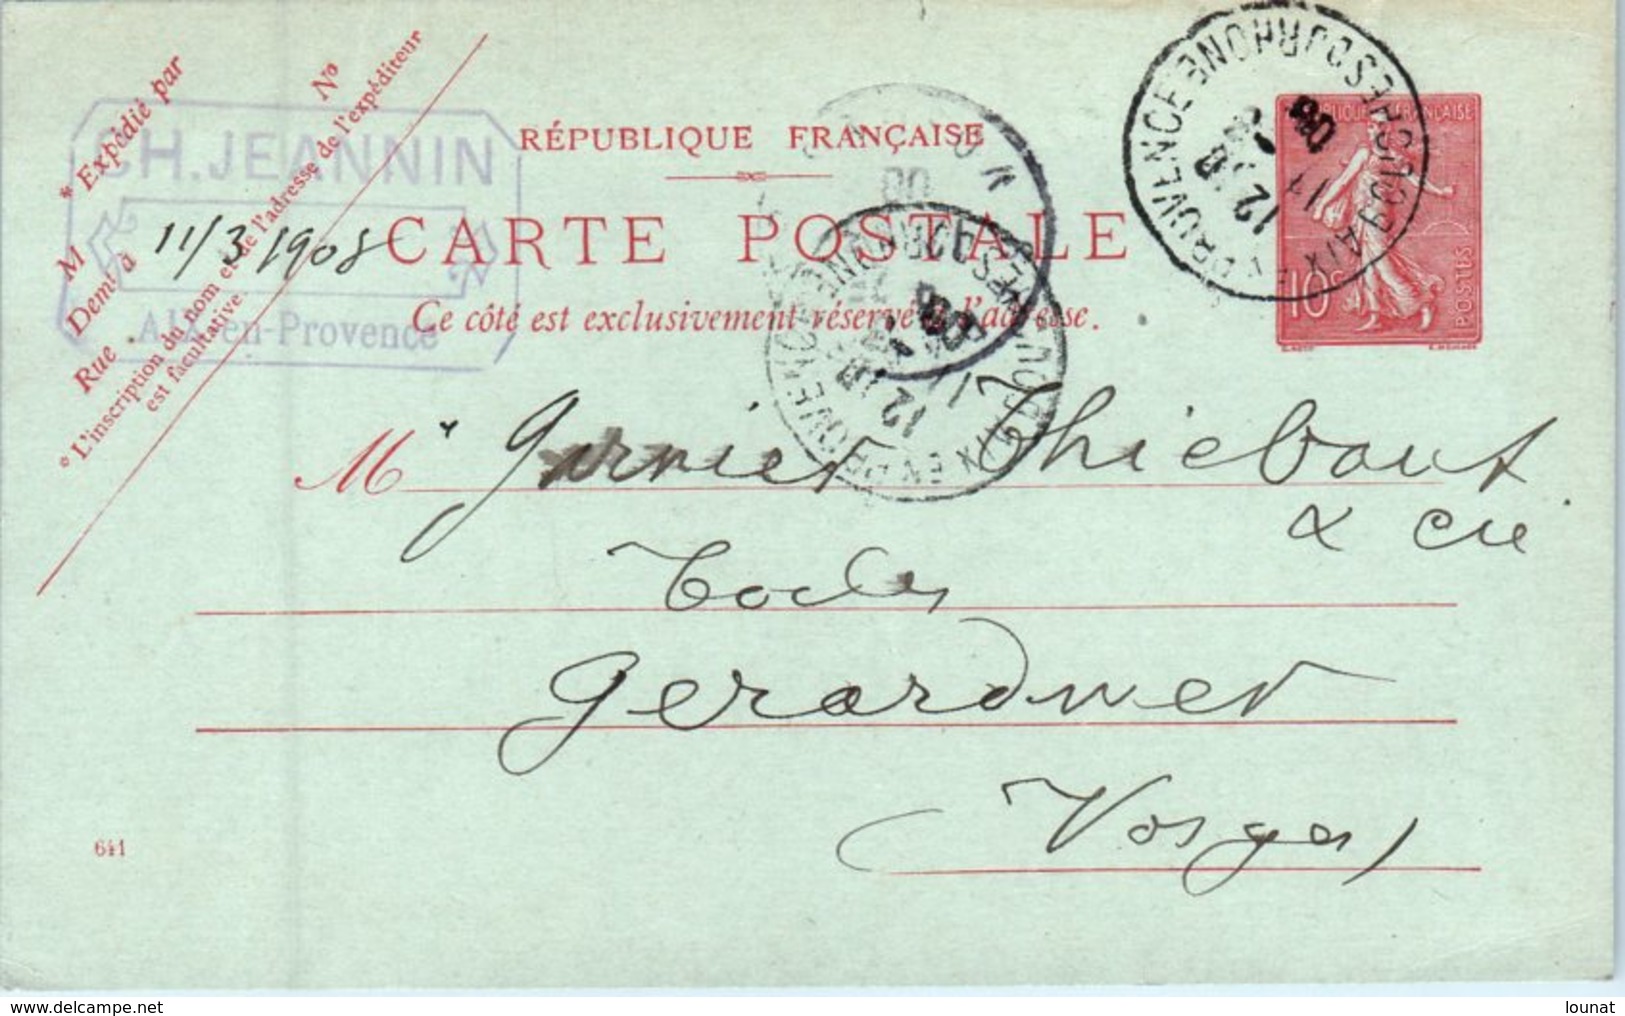 * Expédié par
M
Demt à
Rue
No
* L'inscription du nom et de l'adresse de l'expéditeur
est facultative
CH. JEANNIN
AIX-en-Provence
11/3/1908
RÉPUBLIQUE FRANÇAISE
CARTE POSTALE
Ce côté est exclusivement réservé à l'adresse.
RÉPUBLIQUE FRANÇAISE
10c
POSTES
AIX EN PROVENCE BOUCHES DU RHONE
12
11
3
08
AIX EN PROVENCE BOUCHES DU RHONE
12
11
3
08
M r Garnier Thiebaut
& Cie
Toiles
Gerardmer
Vosges
641
www.delcampe.net
lounat